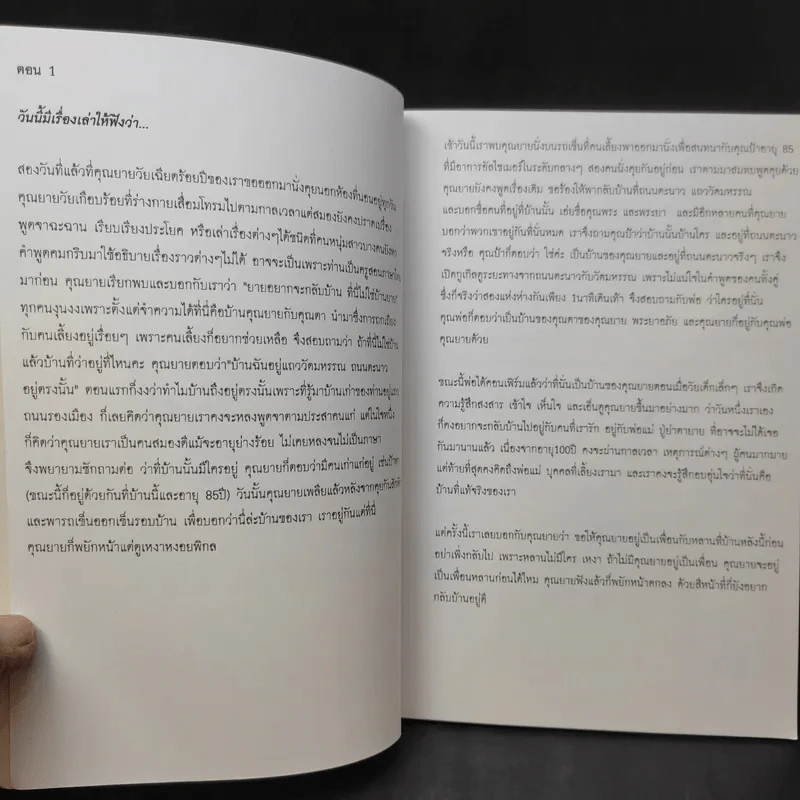 ตอน 1
วันนี้มีเรื่องเล่าให้ฟังว่า...
สองวันที่แล้วที่คุณยายวัยเฉียดร้อยปีของเราขอออกมานั่งคุยนอกห้องที่นอนอยู่ทุกวัน
คุณยายวัยเกือบร้อยที่ร่างกายเสื่อมโทรมไปตามกาลเวลาแต่สมองยังคงปราดเปรื่อง
พูดจาฉะฉาน เรียบเรียงประโยค หรือเล่าเรื่องต่างๆได้ชนิดที่คนหนุ่มสาวบางคนยังหา
คำพูดคมกริบมาใช้อธิบายเรื่องราวต่างๆไม่ได้ อาจจะเป็นเพราะท่านเป็นครูสอนภาษาไทย
มาก่อน คุณยายเรียกพบและบอกกับเราว่า "ยายอยากจะกลับบ้าน ที่นี่ไม่ใช่บ้านยาย"
ทุกคนงุนงงเพราะตั้งแต่จำความได้ที่นี่คือบ้านคุณยายกับคุณตา นำมาซึ่งการถกเถียง
กับคนเลี้ยงอยู่เรื่อยๆ เพราะคนเลี้ยงก็อยากช่วยเหลือ จึงสอบถามว่า ถ้าที่นี่ไม่ใช่บ้าน
แล้วบ้านที่ว่าอยู่ที่ไหนคะ คุณยายตอบว่า"บ้านฉันอยู่แถววัดมหรรณ ถนนตะนาว
อยู่ตรงนั้น" ตอนแรกก็งงว่าทำไมบ้านถึงอยู่ตรงนั้นเพราะที่รู้มาบ้านเก่าของท่านอยู่แถว
ถนนรองเมือง ก็เลยคิดว่าคุณยายเราคงจะหลงพูดจาตามประสาคนแก่ แต่ในใจหนึ่ง
ก็คิดว่าคุณยายเราเป็นคนสมองดีแม้จะอายุย่างร้อย ไม่เคยหลงจนไม่เป็นภาษา
จึงพยายามซักถามต่อ ว่าที่บ้านนั้นมีใครอยู่ คุณยายก็ตอบว่ามีคนเก่าแก่อยู่ เช่นป้า
(ขณะนี้ก็อยู่ด้วยกันที่บ้านนี้และอายุ 85ปี) วันนั้นคุณยายเพลียแล้วหลังจากคุยกันสักพัก
และพารถเข็นออกเข็นรอบบ้าน เพื่อบอกว่านี่ล่ะบ้านของเรา เราอยู่กันแต่ที่นี่
คุณยายก็พยักหน้าแต่ดูเหงาหงอยพิกล
เช้าวันนี้เราพบคุณยายนั่งบนรถเข็นที่คนเลี้ยงพาออกมานั่งเพื่อสนทนากับคุณป้าอายุ 85
ที่มีอาการอัลไซเมอร์ในระดับกลางๆ สองคนนั่งคุยกันอยู่ก่อน เราตามมาสมทบพูดคุยด้วย
คุณยายยังคงพูดเรื่องเดิม ขอร้องให้พากลับบ้านที่ถนนตะนาว แถววัดมหรรณ
และบอกชื่อคนที่อยู่ที่บ้านนั้น เอ่ยชื่อคุณพระ และพระยา และมีอีกหลายคนที่คุณยาย
บอกว่าพวกเขาอยู่กันที่นั่นหมด เราจึงถามคุณป้าว่าบ้านนั้นบ้านใคร และอยู่ที่ถนนตะนาว
จริงหรือ คุณป้าก็ตอบว่า ใช่ค่ะ เป็นบ้านของคุณยายและอยู่ที่ถนนตะนาวจริงๆ เราจึง
เปิดกูเกิลดูระยะทางจากถนนตะนาวกับวัดมหรรณ เพราะไม่แน่ใจในคำพูดของคนทั้งคู่
ซึ่งก็จริงว่าสองแห่งห่างกันเพียง 1นาทีเดินเท้า จึงสอบถามกับพ่อ ว่าใครอยู่ที่นั่น
คุณพ่อก็ตอบว่าเป็นบ้านของคุณตาของคุณยาย พระยาอภัย และคุณยายก็อยู่กับคุณพ่อ
คุณยายด้วย
ขณะนี้พ่อได้คอนเฟิร์มแล้วว่าที่นั่นเป็นบ้านของคุณยายตอนเมื่อวัยเด็กเล็กๆ เราจึงเกิด
ความรู้สึกสงสาร เข้าใจ เห็นใจ และเอ็นดูคุณยายขึ้นมาอย่างมาก ว่าวันหนึ่งเราเอง
ก็คงอยากจะกลับบ้านไปอยู่กับคนที่เรารัก อยู่กับพ่อแม่ ปู่ย่าตายาย ที่อาจจะไม่ได้เจอ
กันมานานแล้ว เนื่องจากอายุ100ปี คงจะผ่านกาลเวลา เหตุการณ์ต่างๆ ผู้คนมากมาย
แต่ท้ายที่สุดคงคิดถึงพ่อแม่ บุคคลที่เลี้ยงเรามา และเราคงจะรู้สึกอบอุ่นใจว่าที่นั่นคือ
บ้านที่แท้จริงของเรา
แต่ครั้งนี้เราเลยบอกกับคุณยายว่า ขอให้คุณยายอยู่เป็นเพื่อนกับหลานที่บ้านหลังนี้ก่อน
อย่าเพิ่งกลับไป เพราะหลานไม่มีใคร เหงา ถ้าไม่มีคุณยายอยู่เป็นเพื่อน คุณยายจะอยู่
เป็นเพื่อนหลานก่อนได้ไหม คุณยายฟังแล้วก็พยักหน้าตกลง ด้วยสีหน้าที่ก็ยังอยาก
กลับบ้านอยู่ดี